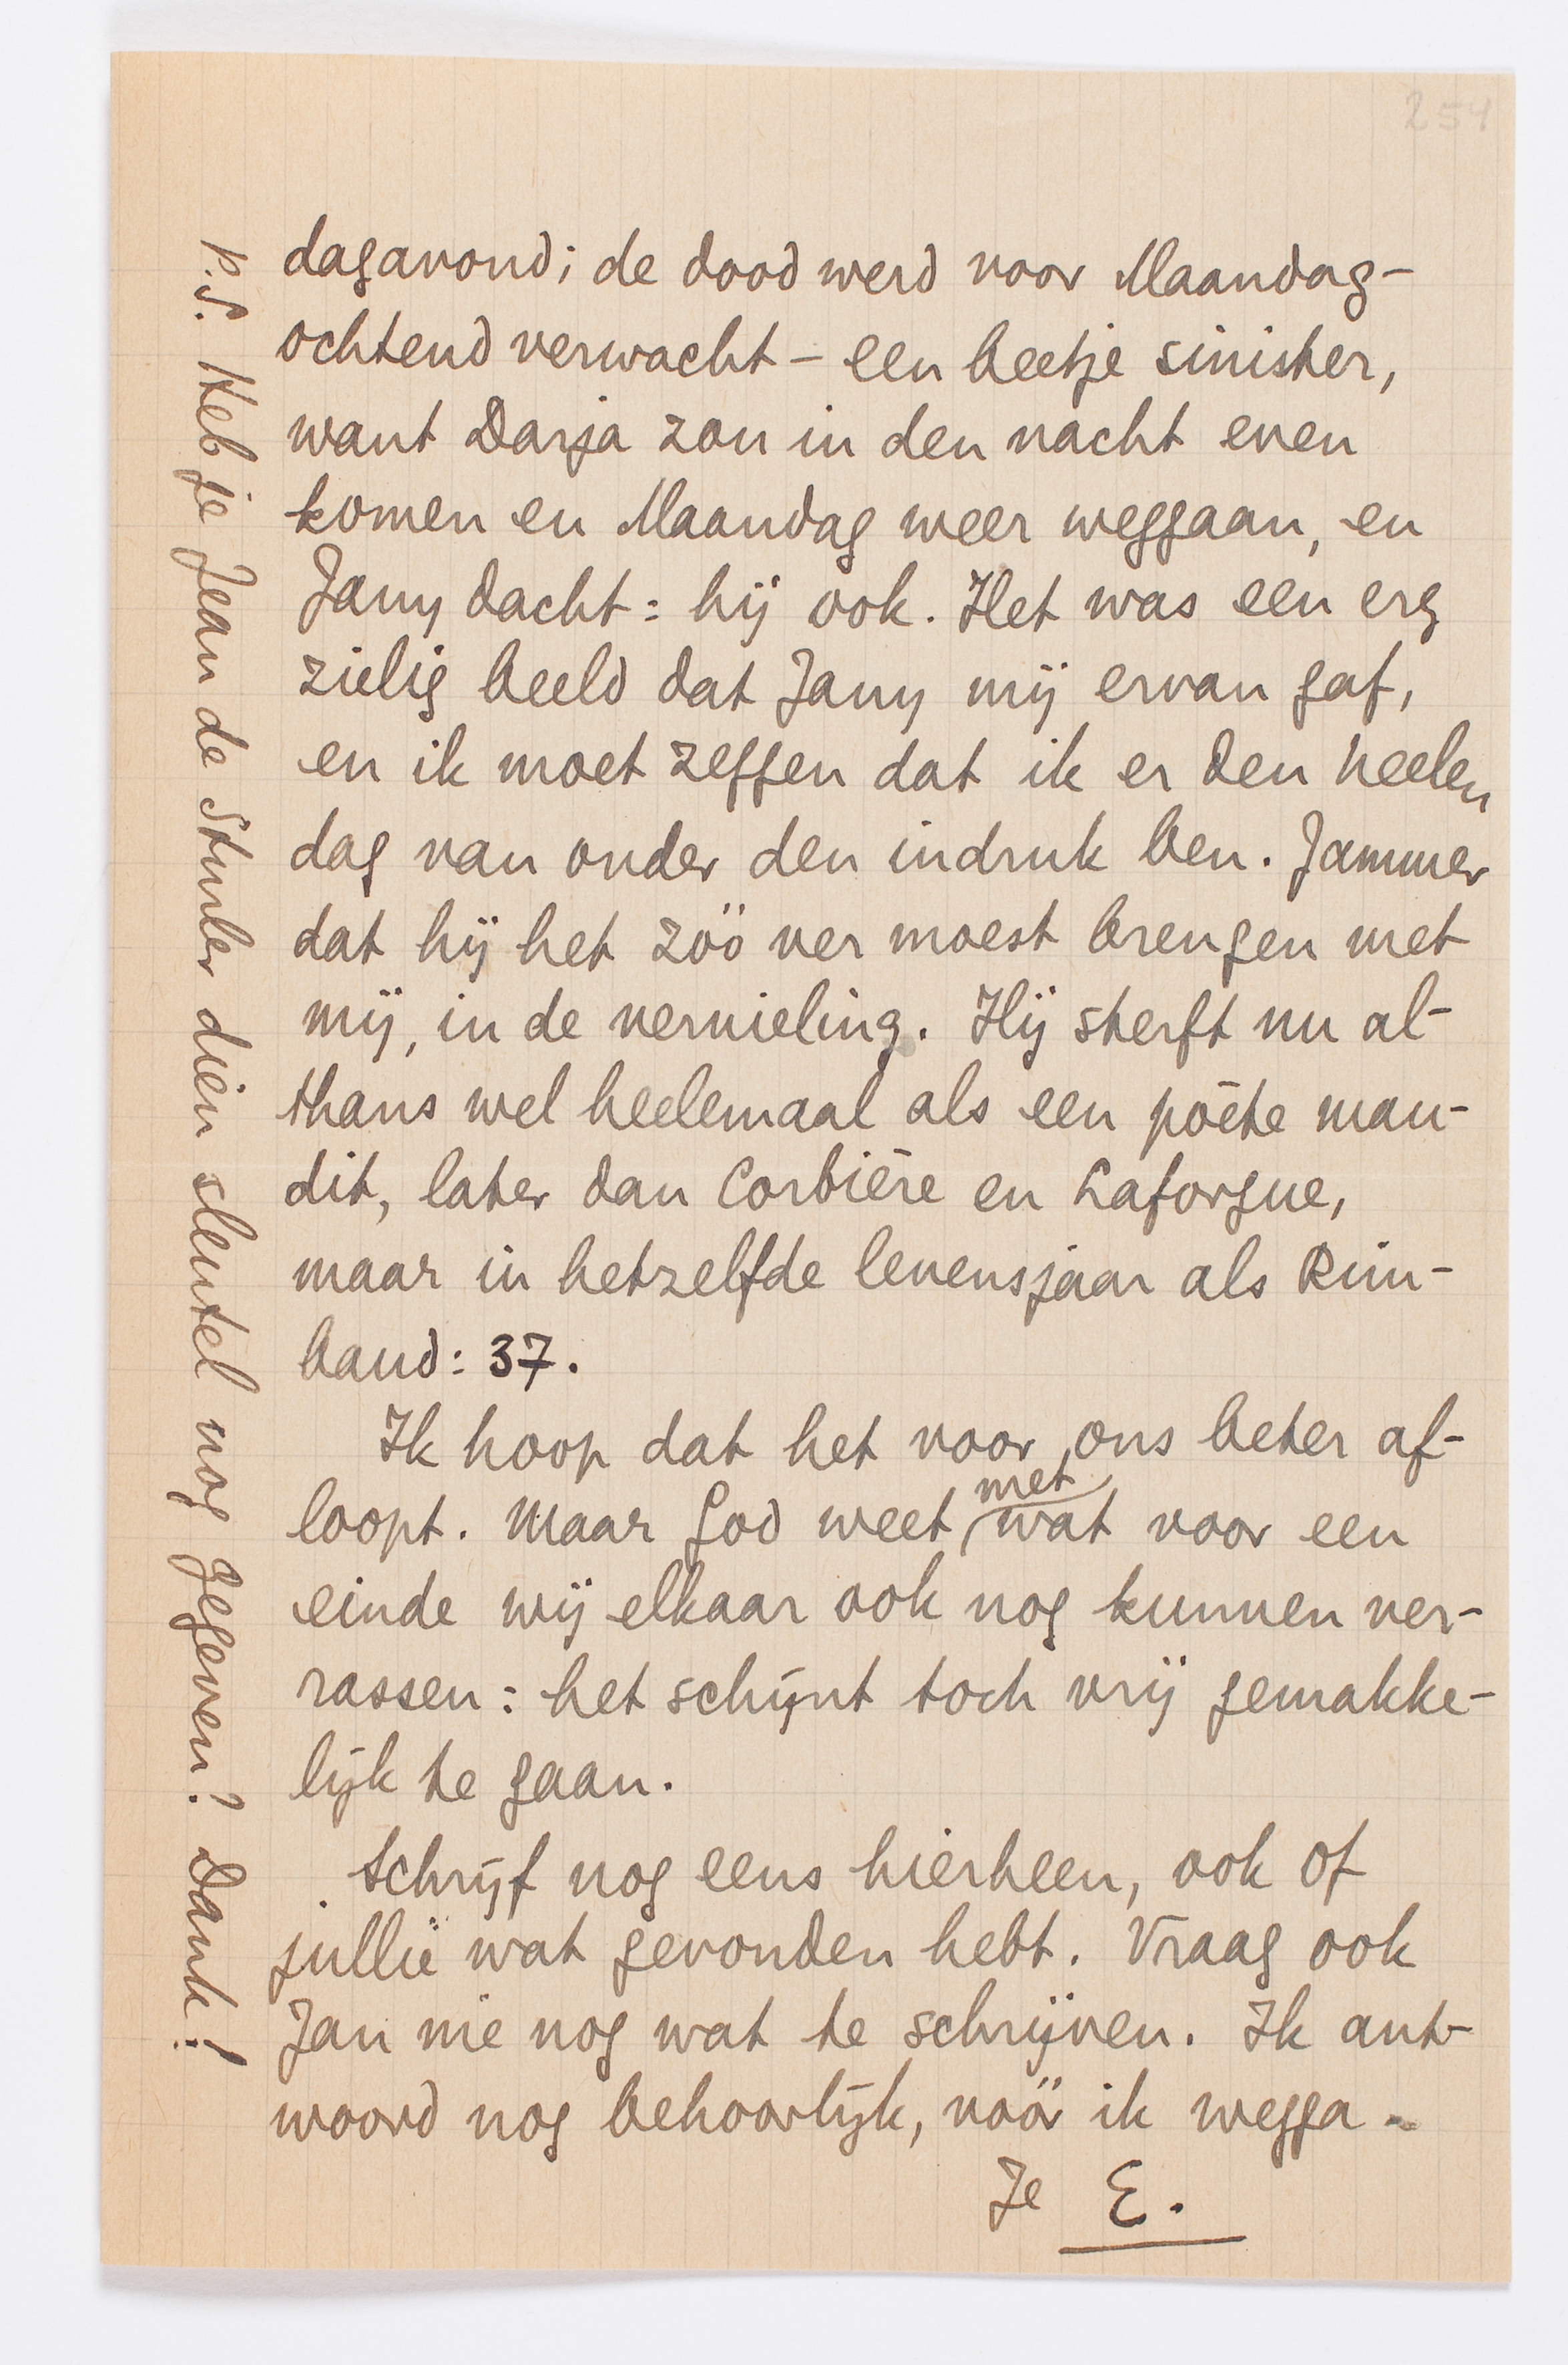 254
dagavond; de dood werd voor Maandag-
ochtend verwacht – een beetje sinister,
want Darja zou in den nacht even
komen en Maandag weer weggaan, en
Jany dacht: hij ook. Het was een erg
zielig beeld dat Jany mij ervan gaf,
en ik moet zeggen dat ik er den heelen
dag van onder den indruk ben. Jammer
dat hij het zóó ver moest brengen met
mij, in de vernieling. Hij sterft nu al-
thans wel heelemaal als een poète mau-
dit, later dan Corbière en Laforgue,
maar in hetzelfde levensjaar als Rim-
baud: 37.
Ik hoop dat het voor ons beter af-
loopt. Maar God weet met wat voor een
einde wij elkaar ook nog kunnen ver-
rassen: het schijnt toch vrij gemakke-
lijk te gaan.
Schrijf nog eens hierheen, ook of
jullie wat gevonden hebt. Vraag ook
Jan mie nog wat te schrijven. Ik ant-
woord nog behoorlijk, vóór ik wegga.
Je E.
P.S. Heb je Jean de Sturler dien sleutel nog gegeven? Dank!